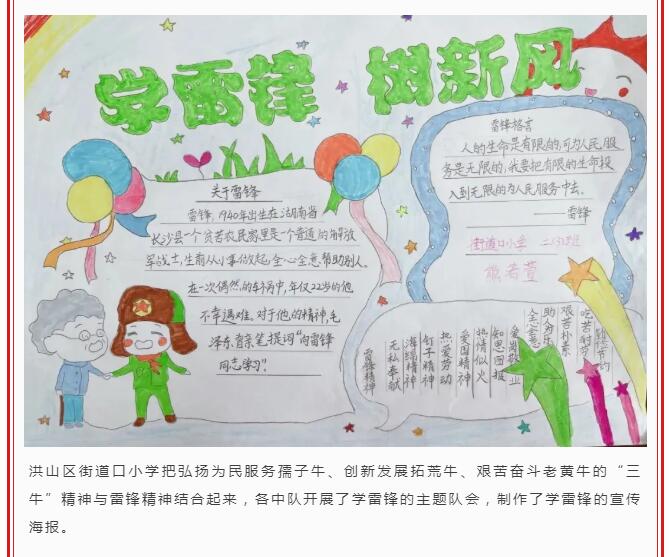 学雷锋 树新风
关于雷锋
雷锋，1940年出生在湖南省
长沙县一个贫苦农民家里是一个普通的解放
军战士，生前从小事做起，全心全意帮助别人。
在一次偶然的车祸中，年仅22岁的他
不幸遇难。对于他的精神，毛
泽东首亲笔提词"向雷锋
同志学习"。
雷锋格言
人的生命是有限的，可为人民服
务是无限的，我要把有限的生命投
入到无限的为人民服务中去。
——雷锋
街道口小学
熊若萱
雷锋精神
无私奉献
海绵精神
钉子精神
热爱劳动
爱国精神
热情似火
知恩图报
爱岗敬业
全心全意
助为乐
艰苦朴素
吃苦耐劳
洪山区街道口小学把弘扬为民服务孺子牛、创新发展拓荒牛、艰苦奋斗老黄牛的“三
牛”精神与雷锋精神结合起来，各中队开展了学雷锋的主题队会，制作了学雷锋的宣传
海报。